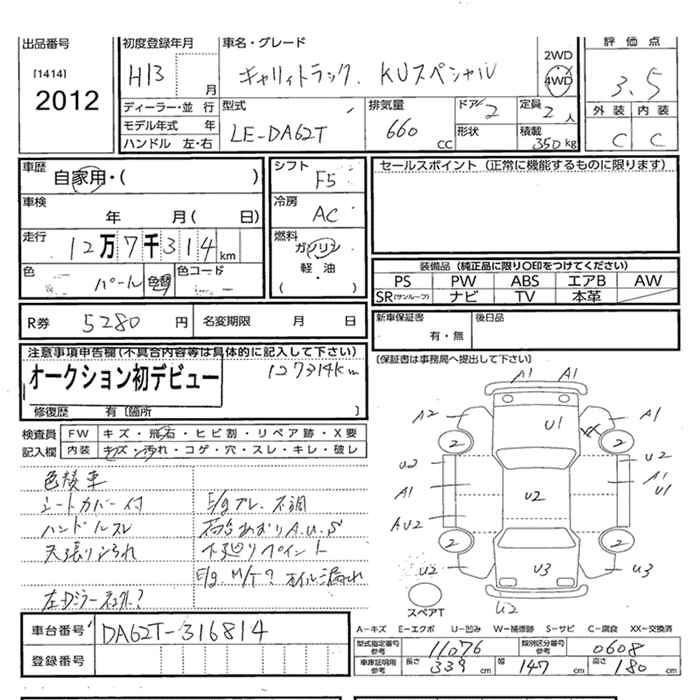 出品番号
[1414]
2012
初度登録年月
H13 月
車名・グレード
キャリイトラック KUスペシャル
2WD
4WD
評価点
3.5
外装 内装
C C
ディーラー・並行
モデル年式 年
ハンドル 左・右
型式
LE-DA62T
排気量
660 CC
ドア 2
形状
定員 2 人
積載 350 kg
車歴
自家用・( )
車検
年 月( 日)
走行
12万7千314km
色
パール 色替
色コード
シフト
F5
冷房
AC
燃料
ガソリン
軽・油
( )
セールスポイント (正常に機能するものに限ります)
装備品 (純正品に限り○印をつけてください)
PS PW ABS エアB AW
SR(サンルーフ) ナビ TV 本革
R券 5280 円 名変期限 月 日
新車保証書
有・無
後日品
(保証書は事務局へ提出して下さい)
注意事項申告欄(不具合内容等は具体的に記入して下さい)
オークション初デビュー
127314km
修復歴 有〔箇所 〕
検査員 FW キズ・飛石・ヒビ割・リペア跡・X要
記入欄 内装 キズ・汚れ・コゲ・穴・スレ・キレ・破レ
色替車
シートカバー付
ハンドルスレ
天張りよごれ
E/gブレ、不調
荷台あおりA.U.S
下廻りペイント
E/g.M/T?オイル漏れ
A1 A1
A2 U1 XX A1
2 2
U2 U2
A1 A1
U2 U1
AU2
2 2
U2 U3 U3
U2
スペアT
A-キズ E-エクボ U-凹み W-補修跡 S-サビ C-腐食 XX-交換済
車台番号 DA62T-316814
登録番号
型式指定番号 参考 11076 類別区分番号 参考 0608
車庫証明用 参考 長さ 339 cm 幅 147 cm 高さ 180 cm